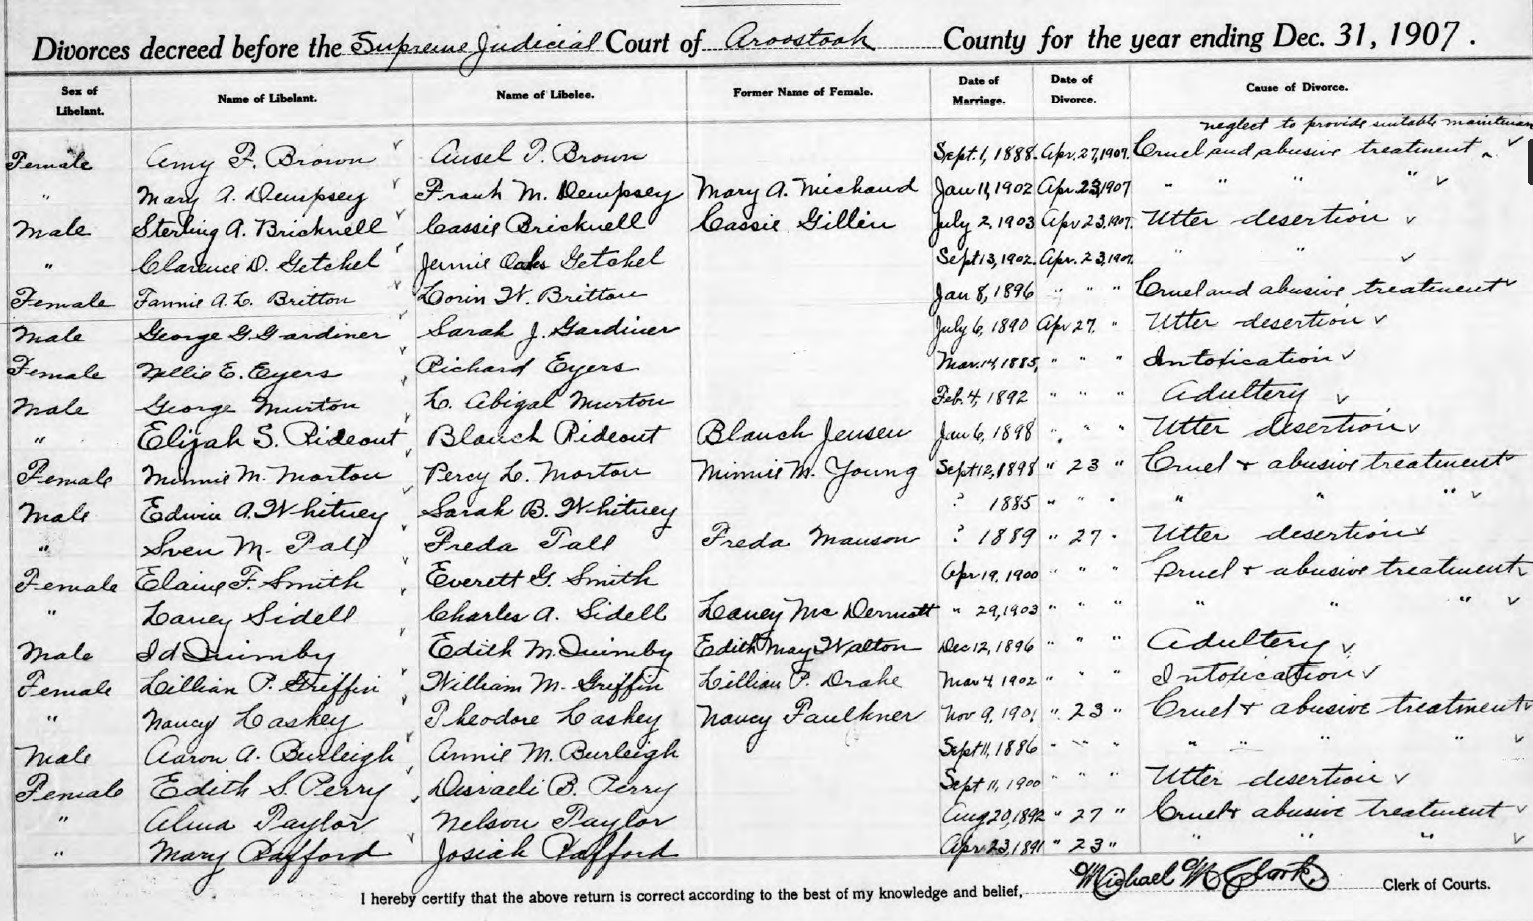 Divorces decreed before the Supreme Judicial Court of Aroostook County for the year ending Dec. 31, 1907.
Sex of Libelant. Name of Libelant. Name of Libelee. Former Name of Female. Date of Marriage. Date of Divorce. Cause of Divorce.
neglect to provide suitable maintenan
Female Amy F. Brown Ansel T. Brown Sept. 1, 1888. Apr. 27, 1907. Cruel and abusive treatment
" Mary A. Dempsey Frank M. Dempsey Mary A. Michaud Jan 11, 1902 Apr 23, 1907 " " " "
Male Sterling A. Bricknell Cassie Bricknell Cassie Gillen July 2, 1903 Apr 23, 1907. Utter desertion
" Clarence D. Getchel Jennie Oaks Getchel Sept 13, 1902. Apr. 23, 1907. " "
Female Fannie A. L. Britton Lorin W. Britton Jan 8, 1896 " " " Cruel and abusive treatment
Male George G. Gardiner Sarah J. Gardiner July 6, 1890 Apr 27. " Utter desertion
Female Nellie E. Eyers Richard Eyers Mar. 14, 1885, " " " Intoxication
Male George Murton L. Abigal Murton Feb. 4, 1892 " " " Adultery
" Elijah S. Rideout Blanch Rideout Blanch Jensen Jan 6, 1898 " " " Utter desertion
Female Minnie M. Morton Percy L. Morton Minnie M. Young Sept 12, 1898 " 23 " Cruel + abusive treatment
Male Edwin A. Whitney Sarah B. Whitney ? 1885 " " " " " "
" Sven M. Tall Freda Tall Freda Manson ? 1889 " 27 " Utter desertion
Female Elaine F. Smith Everett G. Smith Apr 19, 1900 " " " Cruel + abusive treatment
" Laney Sidell Charles A. Sidell Laney McDermott " 29, 1903 " " " " " "
Male Id Quimby Edith M. Quimby Edith May Walton Dec 12, 1896 " " " Adultery
Female Lillian P. Griffin William M. Griffin Lillian P. Drake Mar 4, 1902 " " " Intoxication
" Nancy Laskey Theodore Laskey Nancy Faulkner Nov 9, 1901 " 23 " Cruel + abusive treatment
Male Aaron A. Burleigh Annie M. Burleigh Sept 11, 1886 " " " " " " "
Female Edith S. Perry Disraeli B. Perry Sept 11, 1900 " " " Utter desertion
" Alma Taylor Nelson Taylor Aug 20, 1892 " 27 " Cruel + abusive treatment
" Mary Pafford Josiah Pafford Apr 23, 1891 " 23 " " " " "
I hereby certify that the above return is correct according to the best of my knowledge and belief, Michael M. Clark. Clerk of Courts.